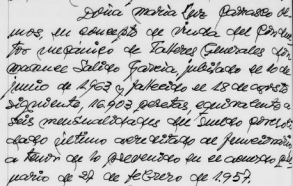 Doña María Luz Carrasco Ol
mos, en concepto de viuda del Conduc
tor mecánico de Talleres Generales don
Manuel Salido García, jubilado en 10 de
junio de 1963 y fallecido el 28 de agosto
siguiente, 16.903 pesetas, equivalente a
seis mensualidades del sueldo consoli
dado último acreditado de funcionario
a tenor de lo prevenido en el acuerdo ple
nario de 27 de febrero de 1.957.